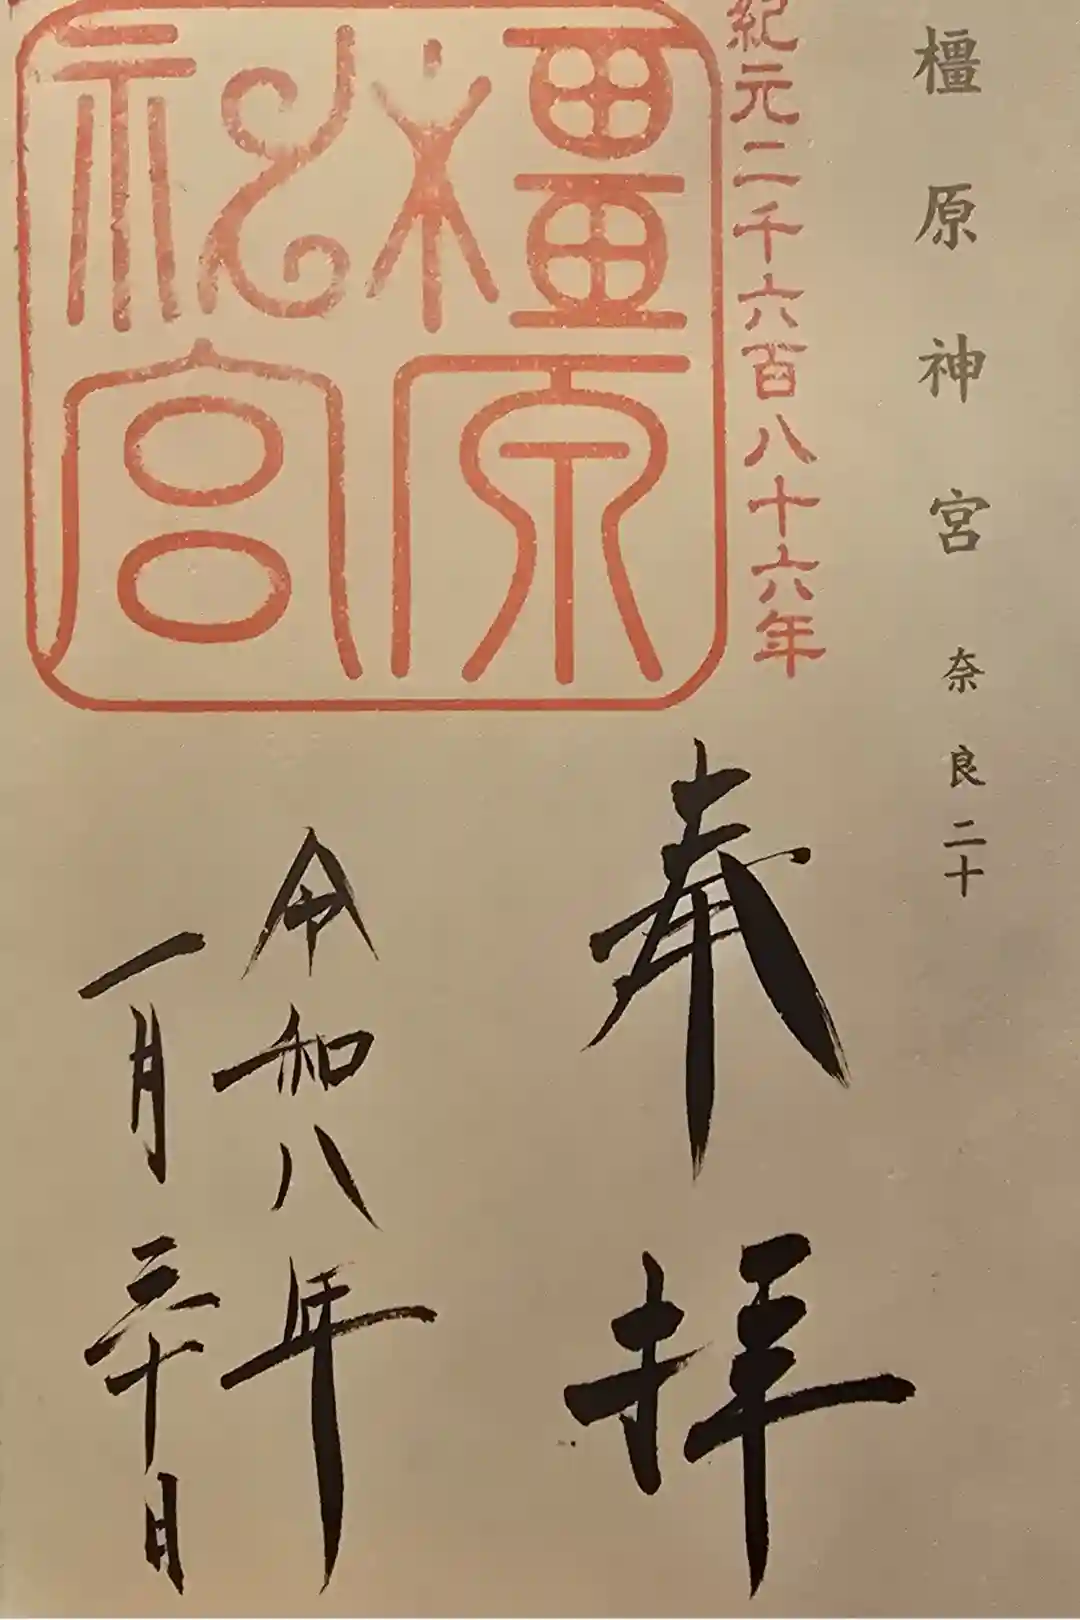 橿原神宮 奈良二十
紀元二千六百八十六年
橿原
神宮
奉拝
令和八年
一月三十日